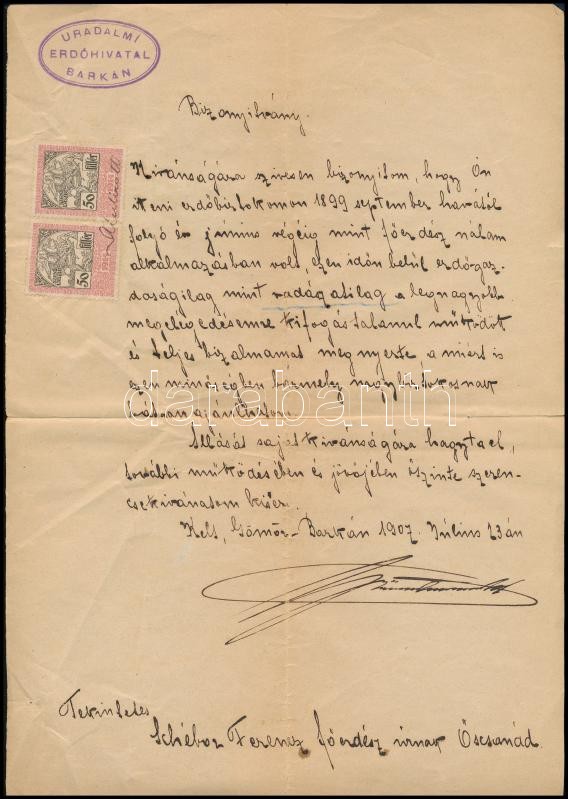 URADALMI
ERDŐHIVATAL
BARKÁN
Bizonyitvány.
Kivánságára szivesen bizonyitom, hogy Ön
iteni erdőbirtokomon 1899 september havától
folyó év június végéig mint főerdész nálam
alkalmazásban volt, ezen időn belül erdőgaz-
daságilag mint vadászatilag a legnagyobb
megelégedésemre kifogástalanul működött
és teljes bizalmamat megnyerte, a miért is
ezen minőségben bármely nagybirtokosnak
ajánlhatom.
Állását saját kivánságára hagyta el,
további működésében és jövőjében őszinte szeren-
csekivánatom kiséri.
Kelt, Gömör-Barkán 1907. Július 23án
Tekintetes
Schébor Ferencz főerdész úrnak Őscsanád.
50
50
darabanth